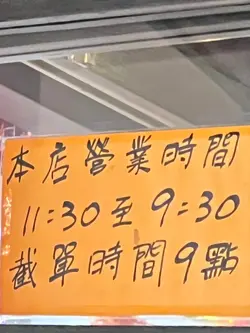 本店營業時間
11:30至9:30
截單時間9點